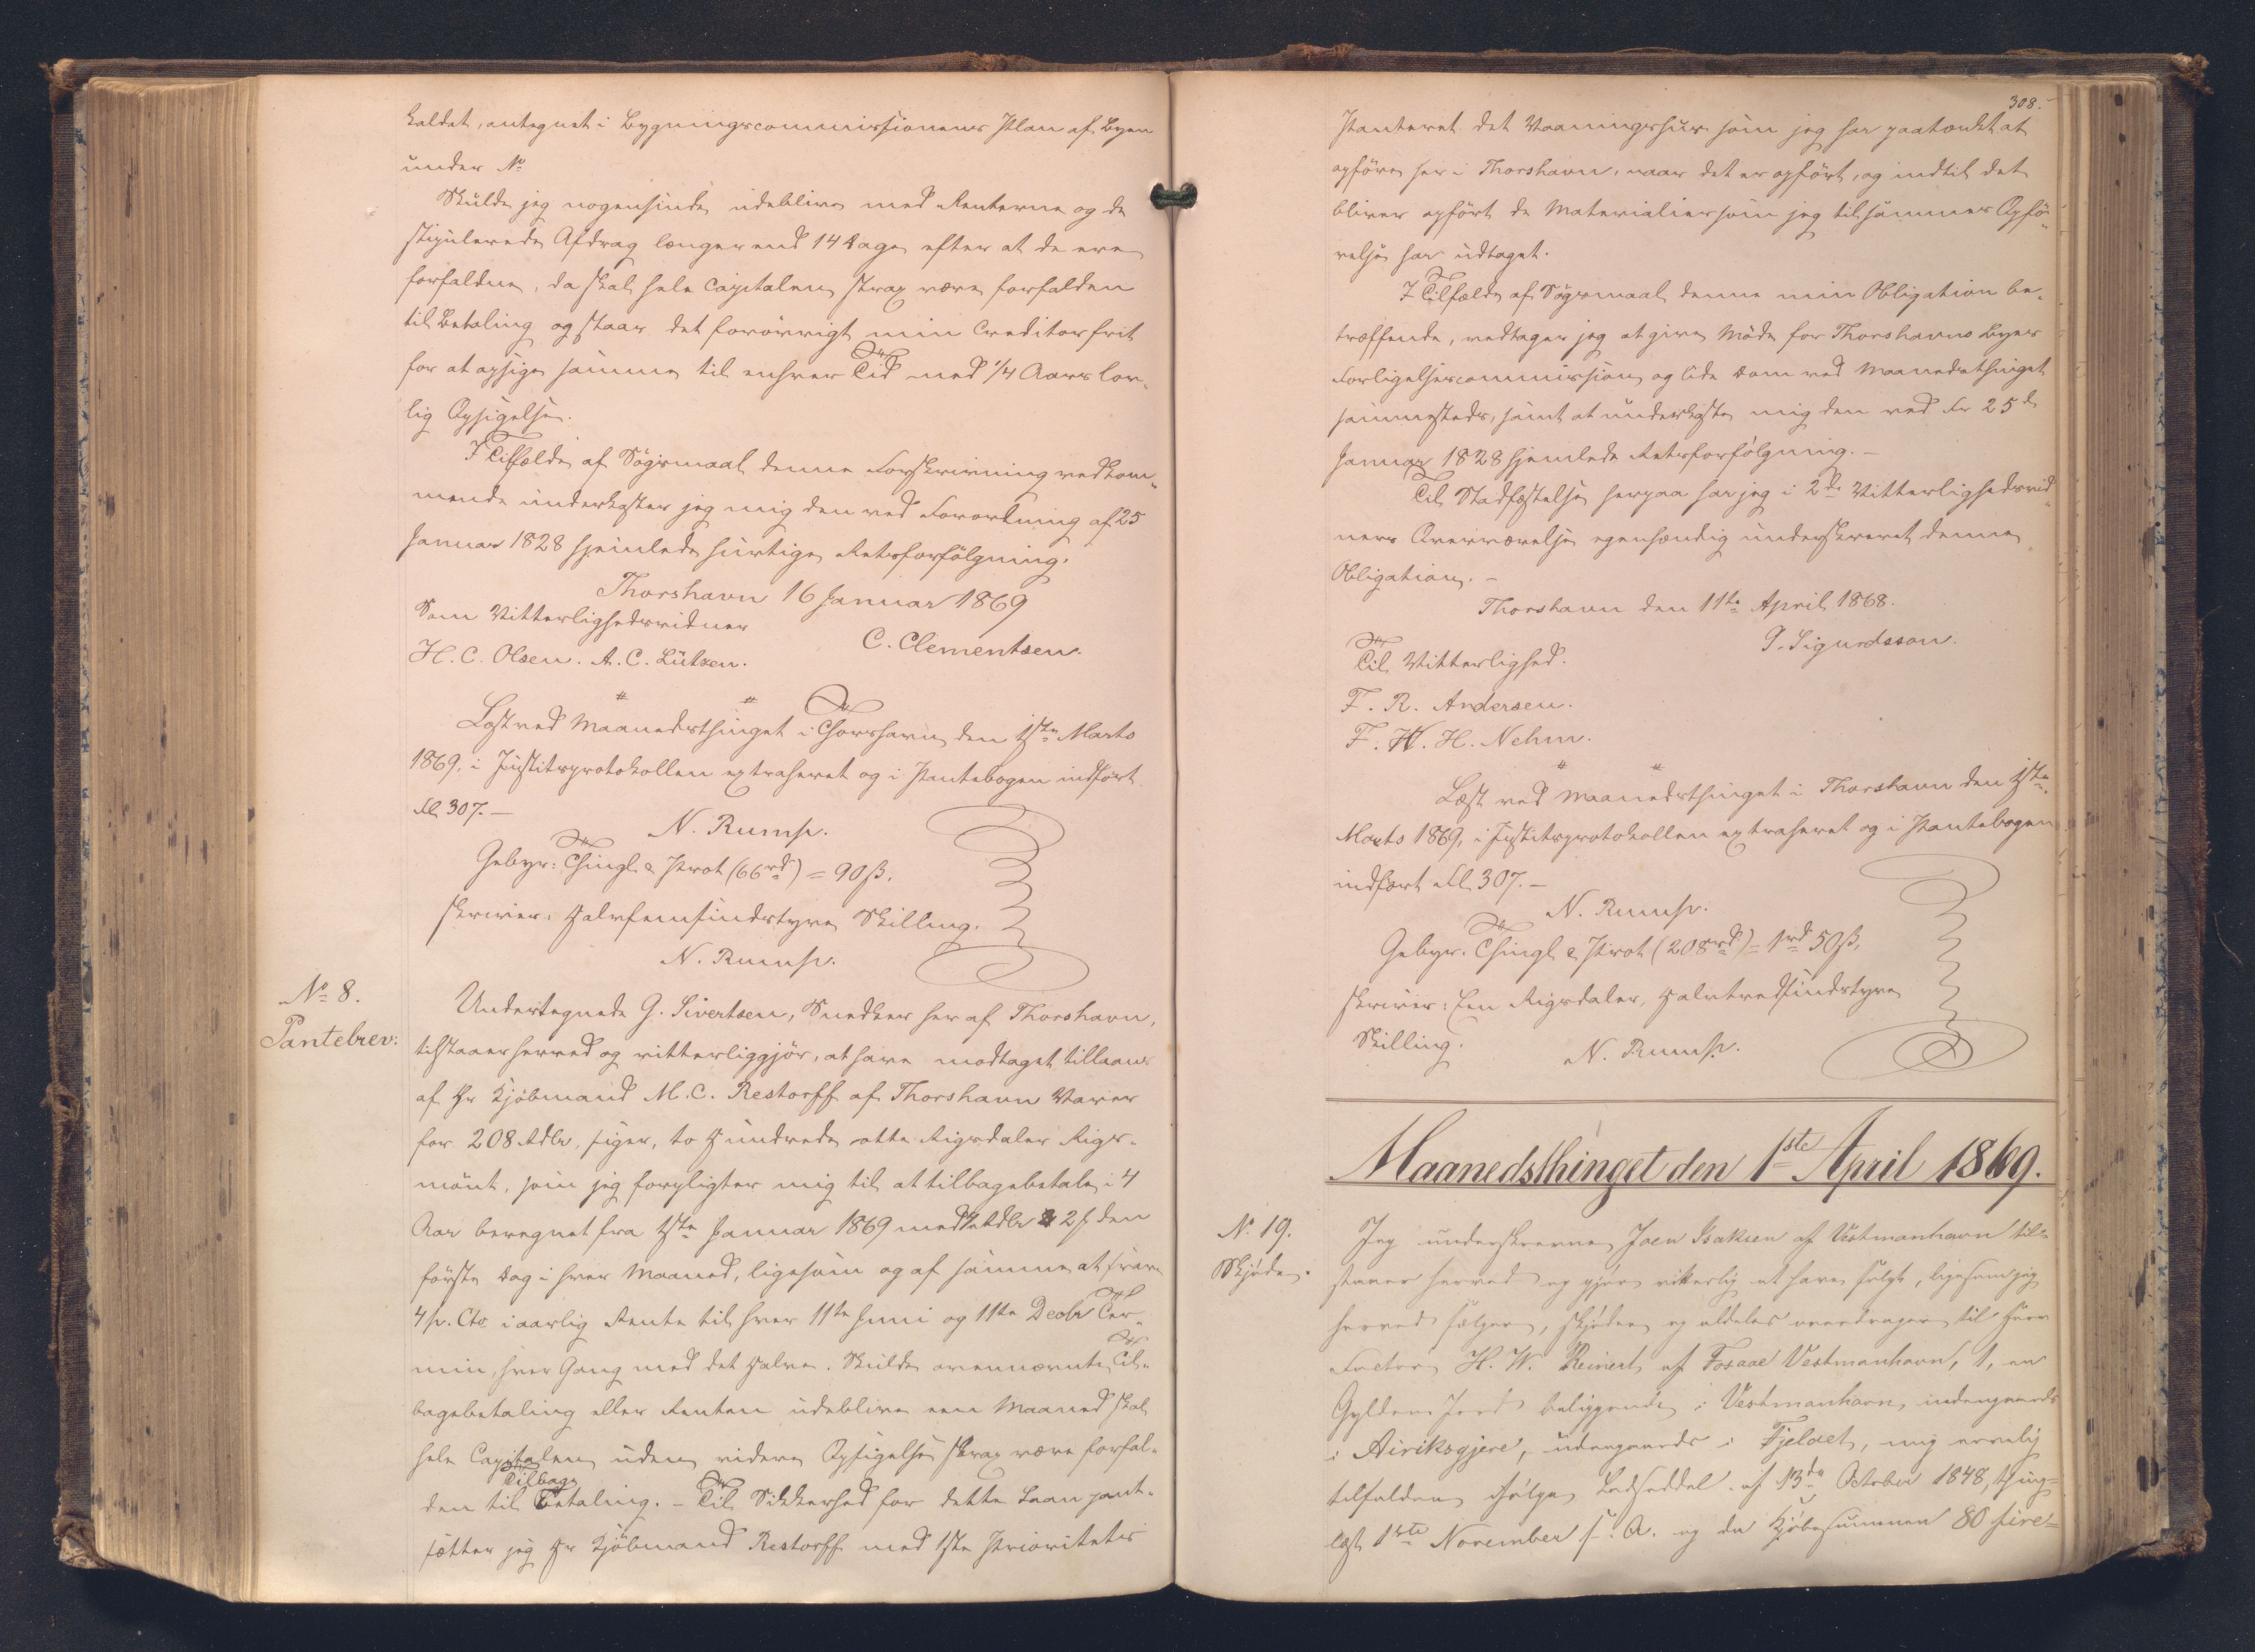 kaldet, antegnet i Bygningscommissionens Plan af Byen
under No
Skulde jeg nogensinde udeblive med Renterne og de
stipulerede Afdrag længer end 14 Dage efter at de ere
forfaldne, da skal hele Capitalen strax være forfalden
til Betaling og staar det forövrigt min Creditor frit
for at opsige samme til enhver Tid med 1/4 Aars lov-
lig Opsigelse.
I Tilfælde af Sögsmaal denne Forskrivning vedkom-
mende underkaster jeg mig den ved Forordning af 25
Januar 1828 hjemlede hurtige Retsforfölgning.
Thorshavn 16 Januar 1869
Som Vitterlighedsvidner
C. Clementsen.
H. C. Olsen. A. C. Lützen.
Læst ved Maanedsthinget i Thorshavn den 1ste Marts
1869, i Justitsprotokollen extraheret og i Pantebogen indfört
Fl 307.—
N. Rump.
Gebyr: Thingl & Prot (66rd) = 90 ß.
skriver: Halvfemsindstyve Skilling.
N. Rump.
No 8.
Pantebrev:
Undertegnede G. Sivertsen, Snedker her af Thorshavn,
tilstaaer herved og vitterliggjör, at have modtaget tillaans
af Hr Kjöbmand M. C. Restorff af Thorshavn Varer
for 208 Rdlr, siger, to Hundrede otte Rigsdaler Rigs-
mönt, som jeg forpligter mig til at tilbagebetale i 4
Aar beregnet fra 1ste Januar 1869 med 4 Rdlr 2 ß den
förste Dag i hver Maaned, ligesom og af samme at svare
4 p. Cto i aarlig Rente til hver 11te Juni og 11te Decbr Ter-
min, hver Gang med det Halve. Skulde ovennævnte Til-
bagebetaling eller Renten udeblive een Maaned skal
hele Capitalen uden videre Opsigelse strax være forfal-
den til Tilbage Betaling. – Til Sikkerhed for dette Laan pant-
sætter jeg Hr Kjöbmand Restorff med 1ste Prioritets
308.
Panteret det Vaaningshus som jeg har paatænkt at
opföre her i Thorshavn, naar det er opfört, og indtil det
bliver opfört de Materialier som jeg til sammes Opfö-
relse har udtaget.
I Tilfælde af Sögsmaal denne min Obligation be-
træffende, vedtager jeg at give Möde for Thorshavns Byes
Forligelsescommission og lide Dom ved Maanedsthinget
sammesteds, samt at underkaste mig den ved Fr 25de
Januar 1828 hjemlede Retsforfölgning. –
Til Stadfæstelse herpaa har jeg i 2de Vitterlighedsvid-
ners Overværelse egenhændig underskrevet denne
Obligation. –
Thorshavn den 11te April 1868.
G. Sigurdsson.
Til Vitterlighed.
F. R. Andersen.
F. W. H. Nehm.
Læst ved Maanedsthinget i Thorshavn den 1ste
Marts 1869, i Justitsprotokollen extraheret og i Pantebogen
indfört Fl 307. –
N. Rump.
Gebyr: Thingl & Prot (208rd) = 1rd 50 ß,
skriver: Een Rigsdaler, Halvtredsindstyve
Skilling.
N. Rump.
Maanedsthinget den 1ste April 1869.
No 19.
Skjøde.
Jeg underskrevne Joen Isaksen af Vestmanhavn til-
staaer herved og gjør vitterlig at have solgt, ligesom jeg
herved sælger, skjøder og aldeles overdrager til Herr
Factor H. W. Reinert af Fosaae Vestmanhavn, 1, en
Gylden Jord beliggende i Vestmanhavn, indengaards
i Airiksgjere, udengaards i Fjeldet, mig arvelig
tilfalden ifølge Lodseddel af 13de October 1848, thing-
læst 1ste November s. A. og da Kjøbesummen 80 fire-